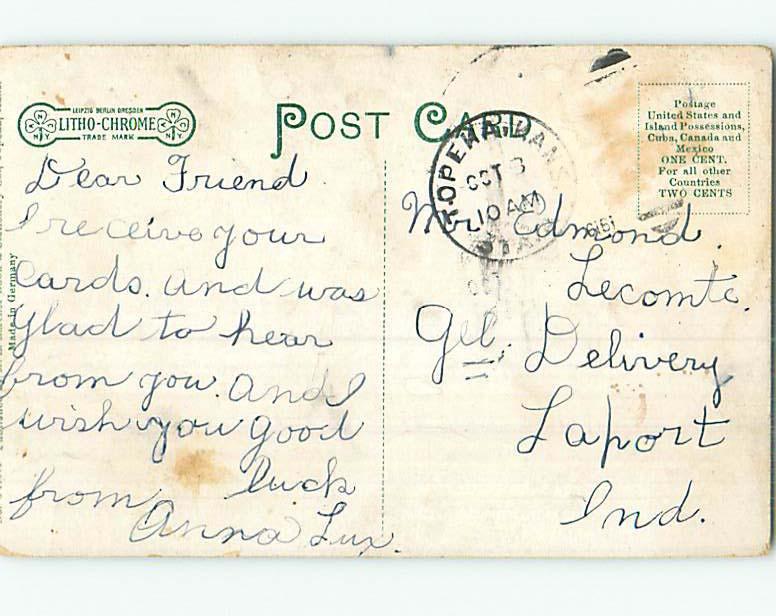 LEIPZIG BERLIN DRESDEN
LITHO-CHROME
TRADE MARK
N Y
N Y
POST CARD
Postage
United States and
Island Possessions,
Cuba, Canada and
Mexico
ONE CENT.
For all other
Countries
TWO CENTS
TOPEKA, KANS
OCT 3
10 AM
Made in Germany
Dear Friend
I receive your
Cards. and was
Glad to hear
from you. and
wish you good
luck
from,
Anna Lux.
Mr. Edmond.
Lecomte.
Gel. Delivery
Laport
Ind.